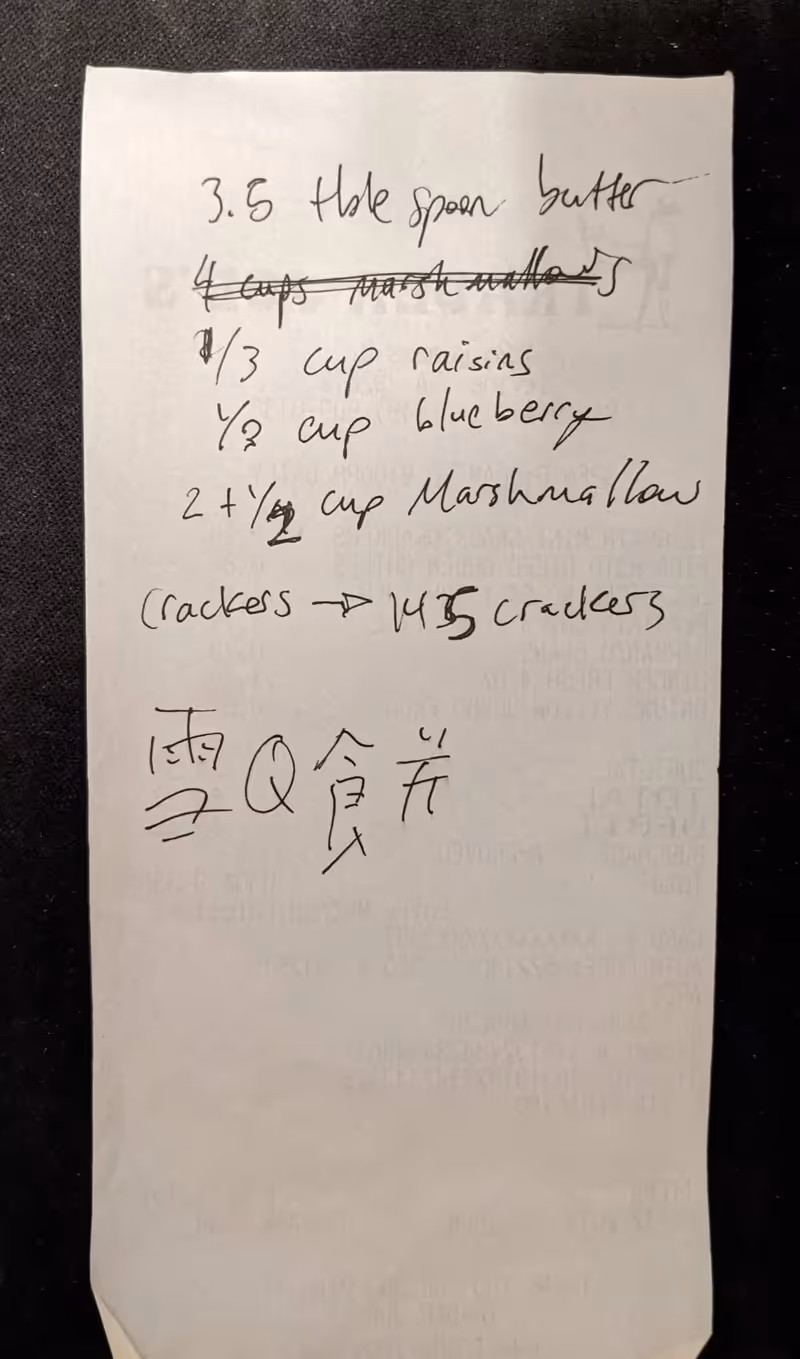 3.5 tble spoon butter
4 cups marshmallows
1/3 cup raisins
1/3 cup blueberry
2 + 1/2 cup Marshmallow
Crackers → 145 crackers
雪Q餅